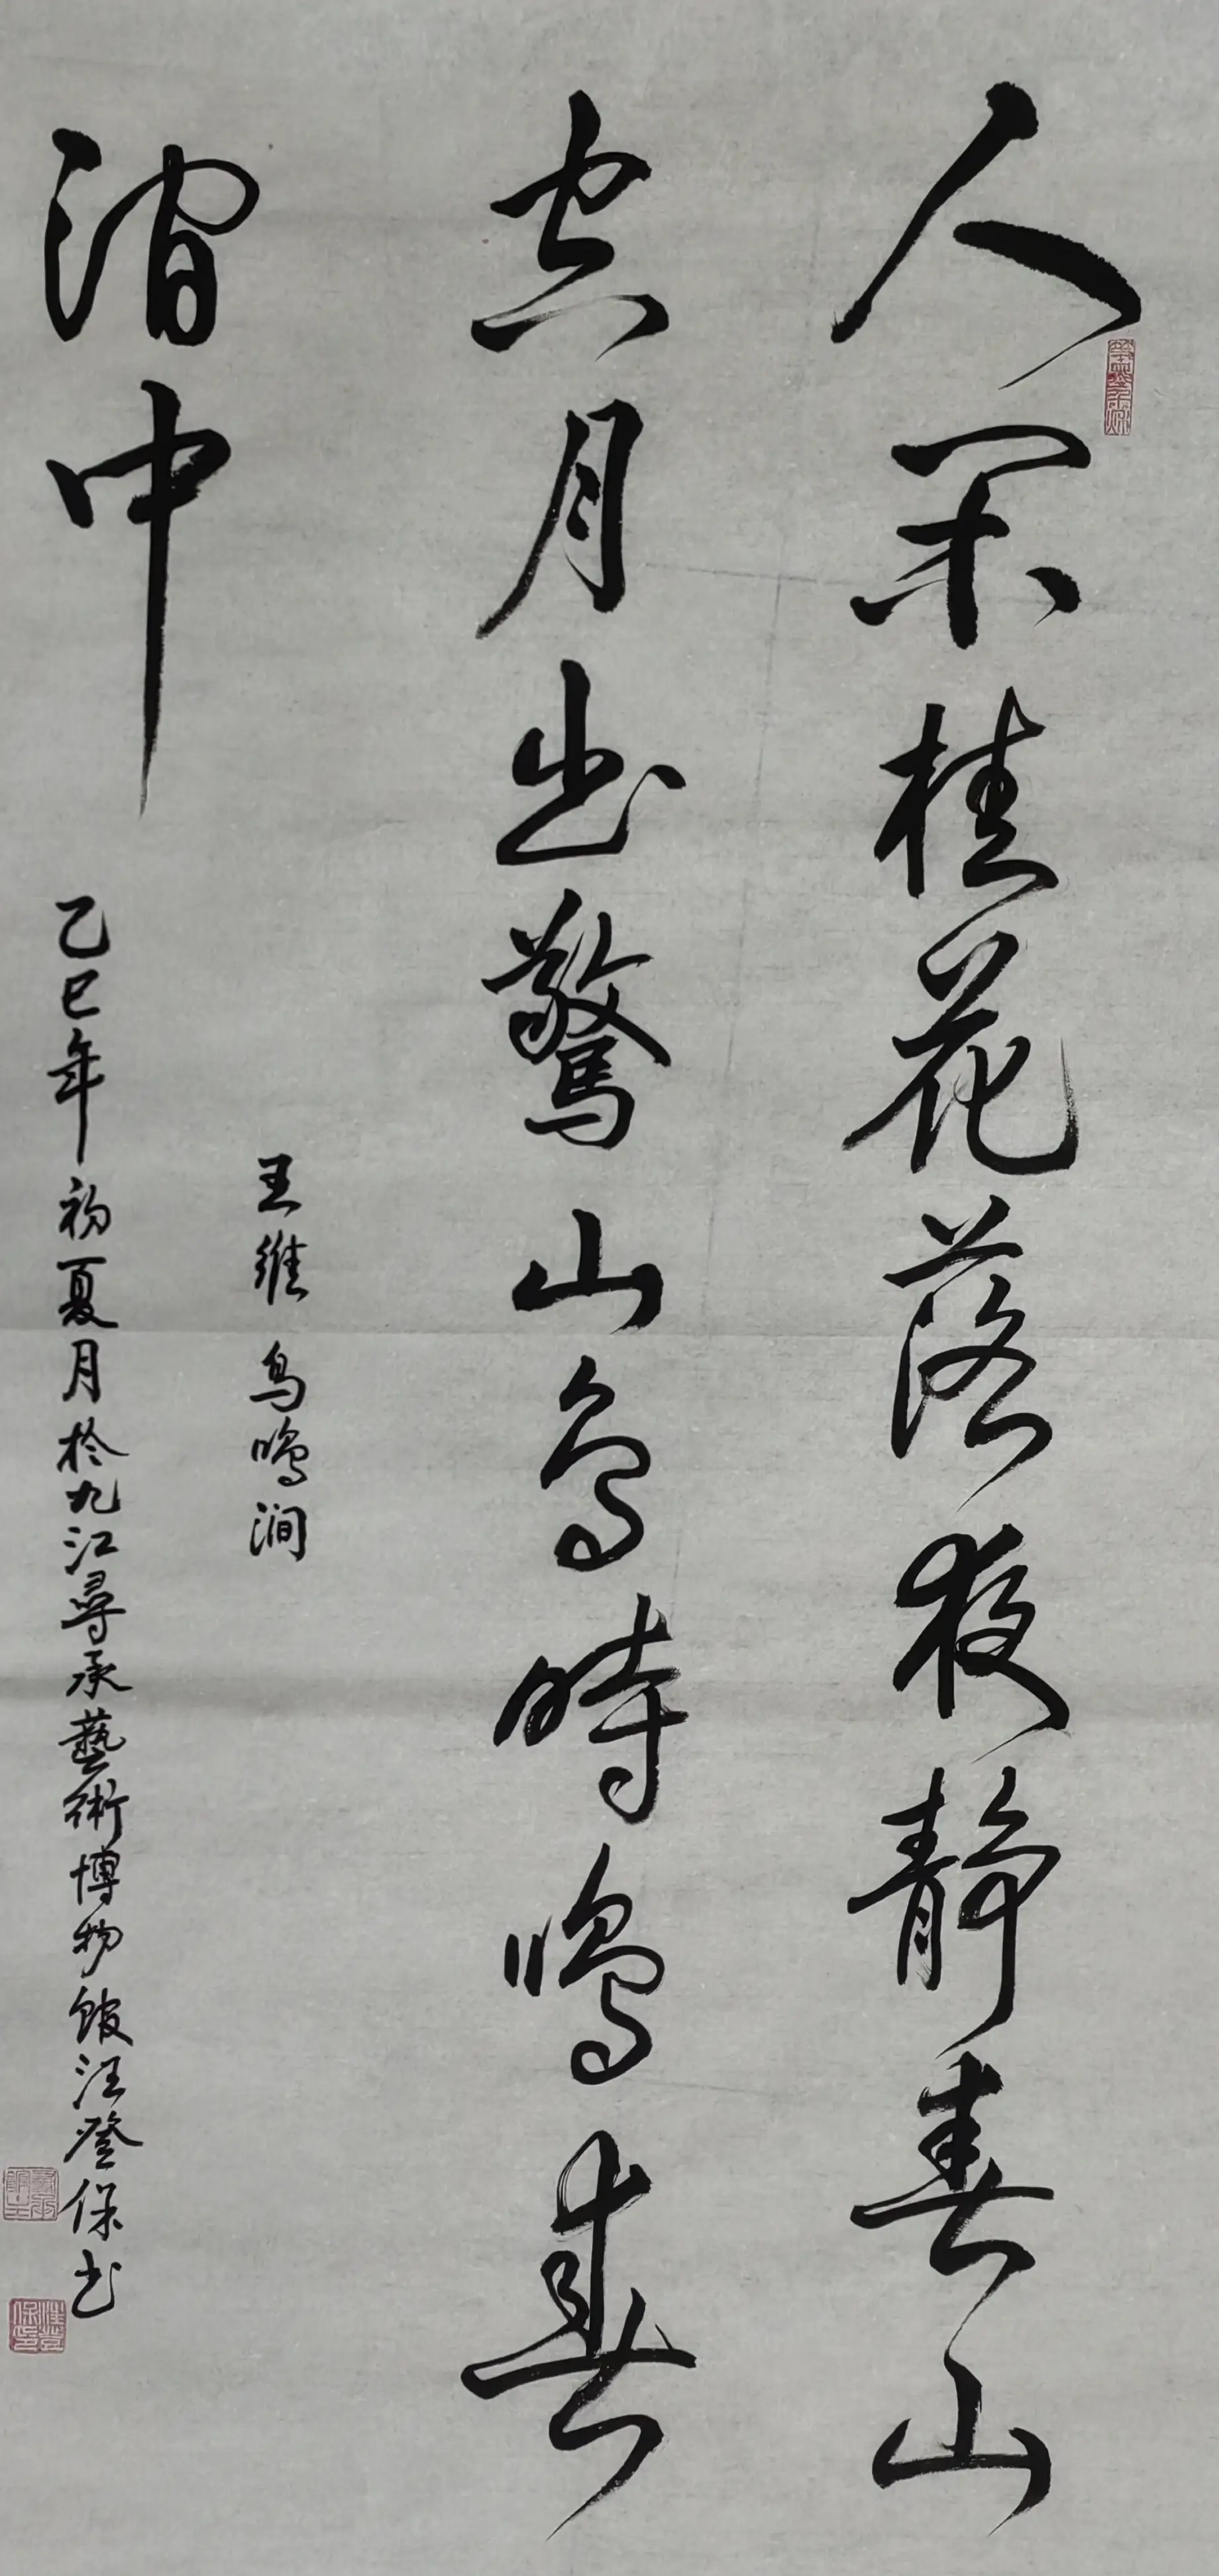 人闲桂花落夜静春山
空月出驚山鸟時鳴春
澗中
王维鸟鳴涧
乙巳年初夏月於九江尋承藝術博物館汪登保书